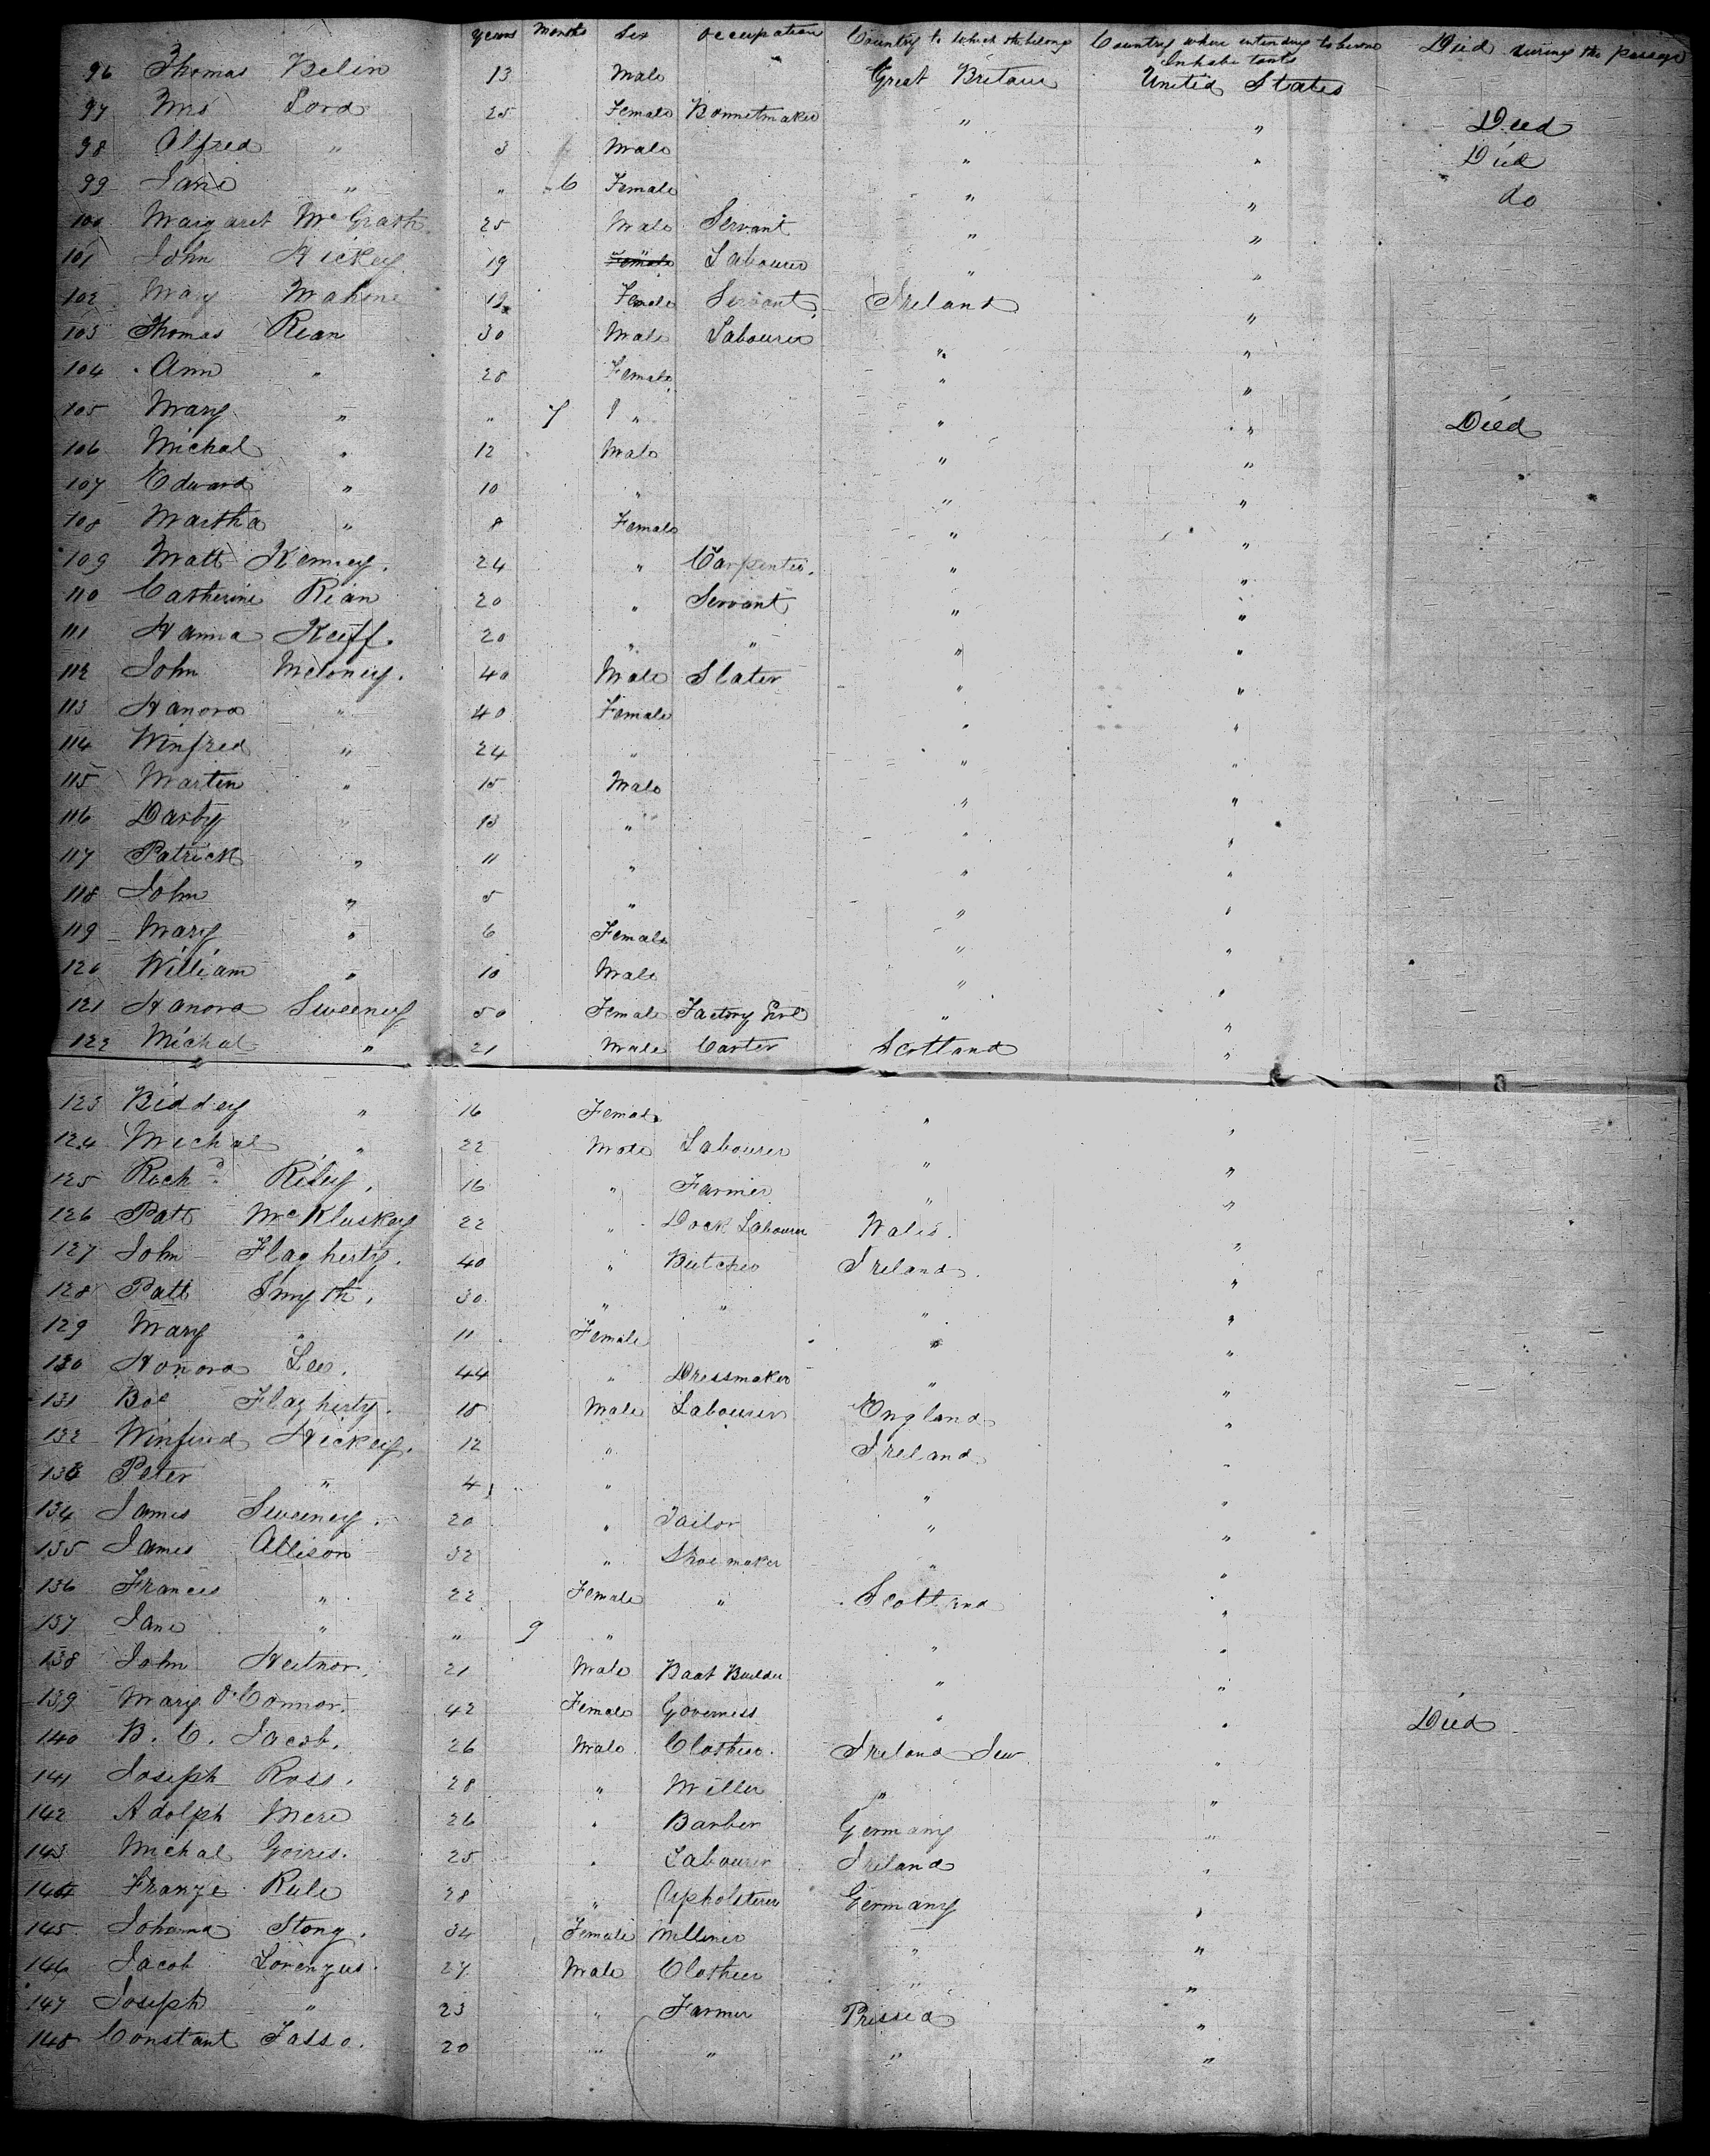 years Months Sex Occupation Country to which they belong Country where intending to become Inhabitants Died during the passage
96 Thomas Belin 13 Male Great Britain United States
97 Mrs Lord 25 Female Bonnetmaker " " Died
98 Alfred " 3 Male " " Died
99 Jane " " 6 Female " " do
100 Margaret McGrath 25 Male Servant " "
101 John Hickey 19 Female Labourer " "
102 May Mahone 19 Female Servant Ireland "
103 Thomas Rian 30 Male Labourer " "
104 Ann " 28 Female " "
105 Mary " " 7 " " " Died
106 Michal " 12 Male " "
107 Edward " 10 " " "
108 Martha " 8 Female " "
109 Matt Kenney. 24 " Carpenter. " "
110 Catherine Rian 20 " Servant " "
111 Hanna Keiff. 20 " " " "
112 John Meloney. 40 Male Slater " "
113 Hanora " 40 Female " "
114 Winfred " 24 " " "
115 Marten " 15 Male " "
116 Darby " 13 " " "
117 Patrick " 11 " " "
118 John " 5 " " "
119 Mary " 6 Female " "
120 William " 10 Male " "
121 Hanora Sweeney 50 Female Factory Girl " "
122 Michal " 21 Male Carter Scotland "
123 Biddey " 16 Female " "
124 Michal " 22 Male Labourer " "
125 Richd Riley. 16 " Farmer " "
126 Patt McKluskey 22 " Dock Labourer Wales. "
127 John Flagherty. 40 " Butcher Ireland. "
128 Patt Smyth. 30 " " " "
129 Mary " 11 Female " "
130 Honora Lee. 44 " Dressmaker " "
131 Flagherty. 18 Male Labourer England "
132 Winfired Hickey. 12 " Ireland "
133 Peter " 4 " " "
134 James Sweeney. 20 " Tailor " "
135 James Allison 32 " Shoe maker " "
136 Frances " 22 Female " Scotland "
137 Jane " " 9 " " "
138 John Heitnor. 21 Male Boat Builder " "
139 Mary O'Connor. 42 Female Governess " " Died
140 B. C. Jacob. 26 Male Clothier. Ireland Jew "
141 Joseph Ross. 28 " Miller " "
142 Adolph Mere 26 " Barber Germany "
143 Michal Goires. 25 " Labourer Ireland "
144 Franze Rule 28 " Upholsterer Germany "
145 Johanna Stong. 34 Female Milliner " "
146 Jacob Lorenzus. 27 Male Clothier " "
147 Joseph " 23 " Farmer Prissia "
148 Constant Tasso. 20 " " " "